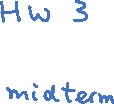 HW 3
midterm